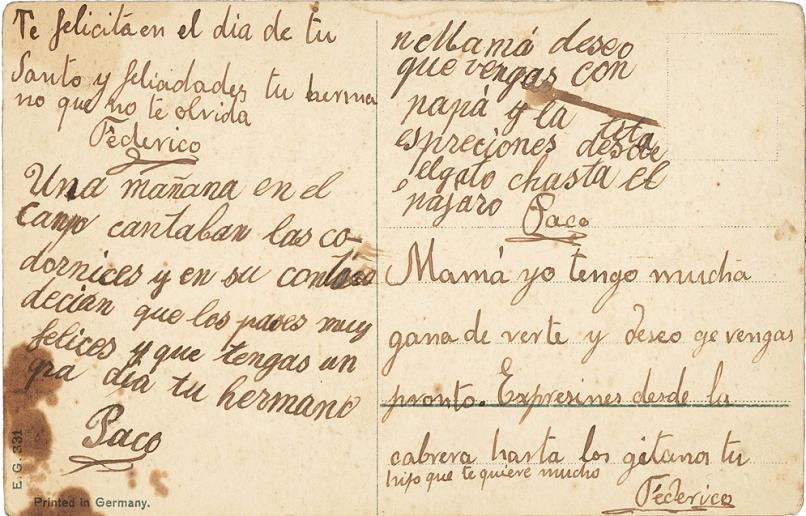 Te felicita en el dia de tu
Santo y feliciadades tu herma
no que no te olvida
Federico
Una mañana en el
campo cantaban las co-
dornices y en su
decian que los pases muy
felices y que tengas un
gra dia tu hermano
Paco
E.G. 331
Printed in Germany.
Mamá deseo
que vengas con
papá y la tita
espreciones desde
el gato chasta el
pajaro
Paco
Mamá yo tengo mucha
gana de verte y deseo qe vengas
pronto. Expresines desde la
cabrera hasta los gitanos tu
hijo que te quiere mucho
Federico